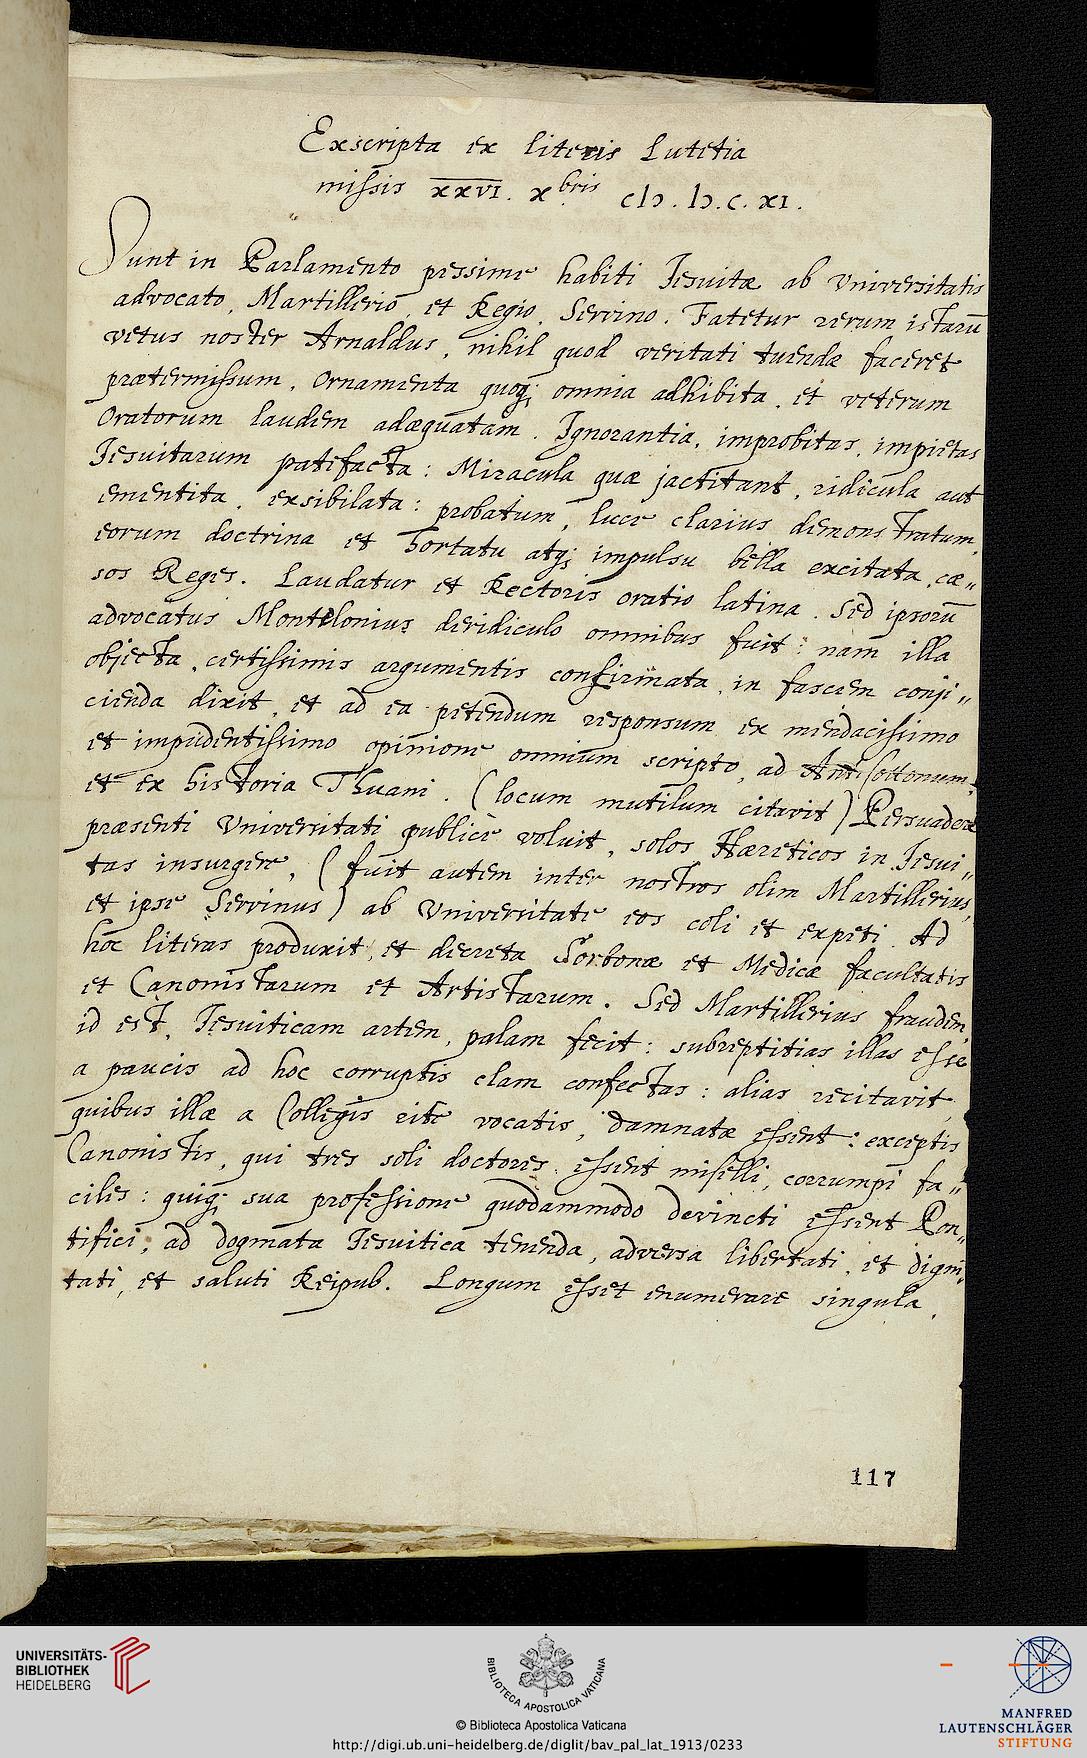 Exscripta ex literis Lutetia
missis XXVI. Xbris CIↃ.IↃ.C.XI.
Sunt in Parlamento pessime habiti Iesuitæ ab Universitatis
advocato, Martillerio, et Regio, Servino. Fatetur rerum istarū
vetus noster Arnaldus, nihil quod veritati tuendæ faceret
prætermissum. Ornamenta quoq; omnia adhibita, et veterum
Oratorum laudem adæquatam. Ignorantia, improbitas, impietas
Iesuitarum patefacta: Miracula quæ jactitant, ridicula aut
ementita, exsibilata: probatum, luce clarius demonstratum,
eorum doctrina et hortatu atq; impulsu bella excitata, cæ„
sos Reges. Laudatur et Rectoris oratio latina. Sed ipsorū
advocatus Montelonius deridiculo omnibus fuit: nam illa
objecta, certissimis argumentis confirmata, in fascem conji„
cienda dixit, et ad ea petendum responsum ex mendacissimo
et impudentissimo opinione omnium scripto, ad Anticottonum,
et ex historia Thuani. (locum mutilum citavit) Persuadere
præsenti Universitati publice voluit, solos Hæreticos in Iesui„
tas insurgere, (fuit autem inter nostros olim Martillerius,
et ipse Servinus) ab Universitate eos coli et expeti. Ad
hoc literas produxit, et decreta Sorbonæ et Medicæ facultatis
et Canonistarum et Artistarum. Sed Martillerius fraudem,
id est, Iesuiticam artem, palam fecit: subreptitias illas esse
a paucis ad hoc corruptis clam confectas: alias recitavit,
quibus illæ a Collegis rite vocatis, damnatæ essent: exceptis
Canonistis, qui tres soli doctores essent miselli, corrumpi fa„
ciles: quiq; sua professione quodammodo devincti essent Pon„
tifici, ad dogmata Iesuitica tenenda, adversa libertati, et digni„
tati, et saluti Reipub. Longum esset enumerare singula.
117
UNIVERSITÄTS-
BIBLIOTHEK
HEIDELBERG
BIBLIOTECA APOSTOLICA VATICANA
© Biblioteca Apostolica Vaticana
http://digi.ub.uni-heidelberg.de/diglit/bav_pal_lat_1913/0233
MANFRED
LAUTENSCHLÄGER
STIFTUNG